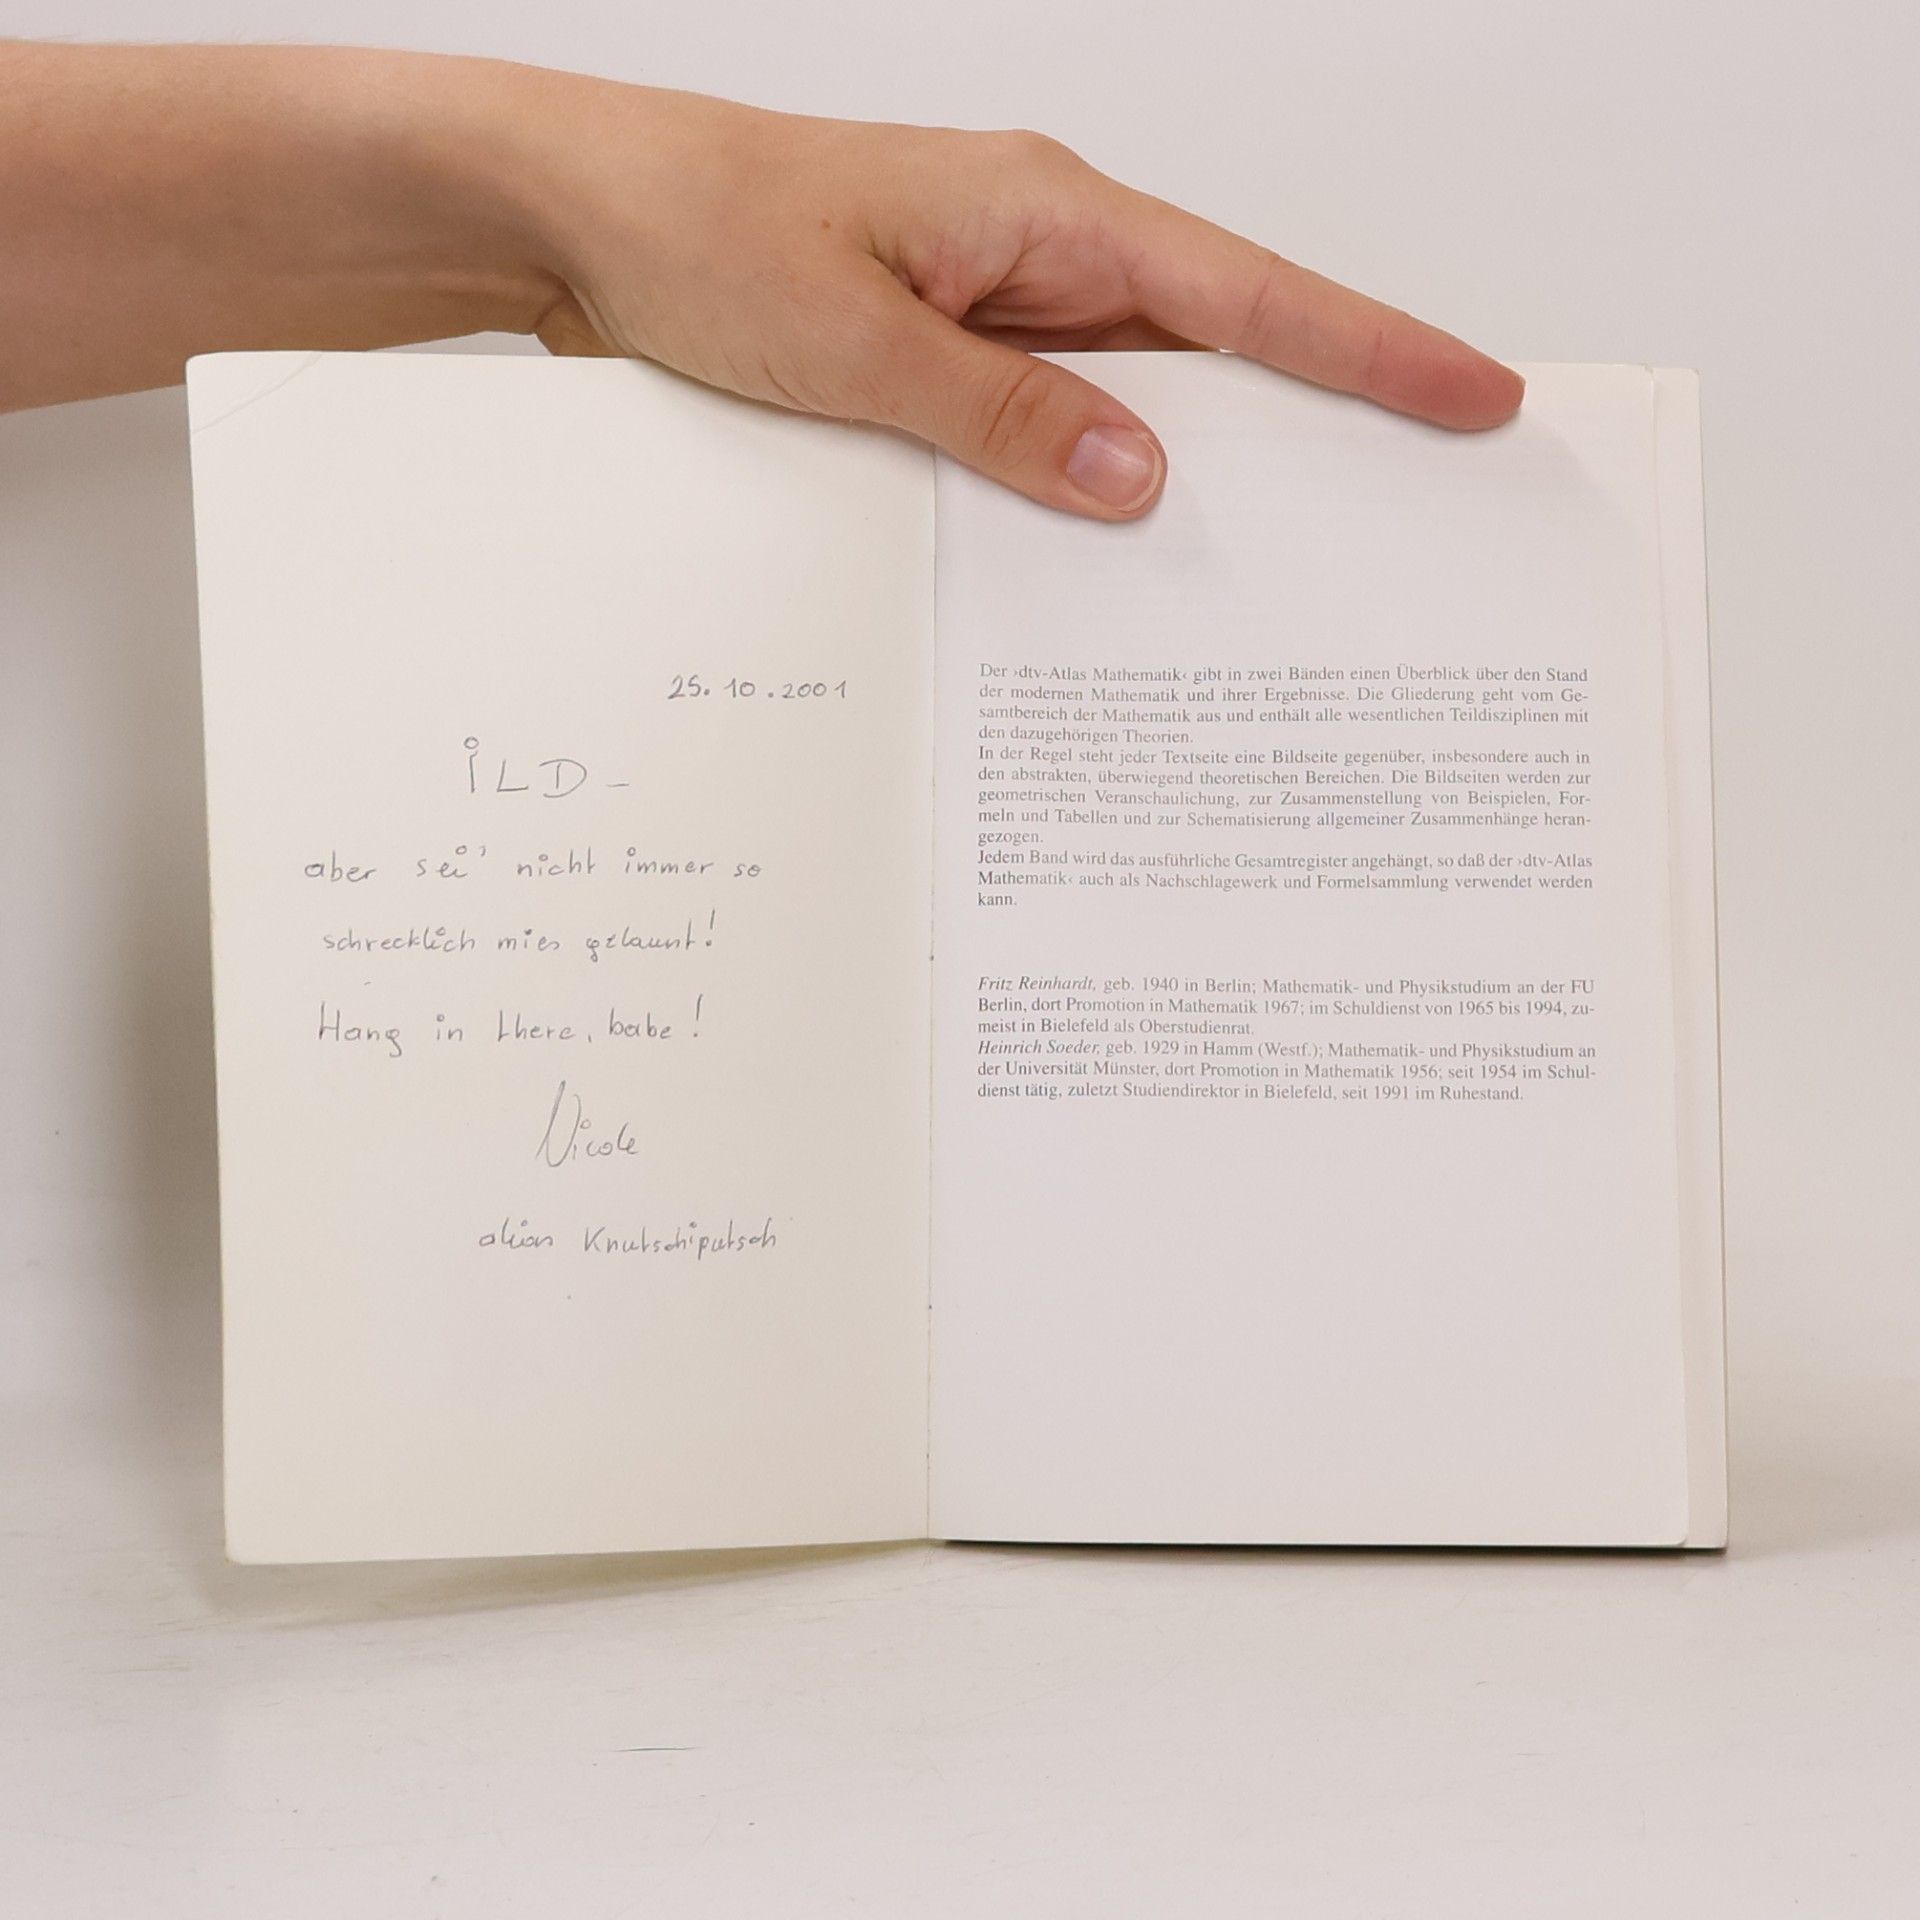 25.10.2001
iLD –
aber sei' nicht immer so
schrecklich mies gelaunt!
Hang in there, babe!
Nicole
alias Knutschiputsch
Der ›dtv-Atlas Mathematik‹ gibt in zwei Bänden einen Überblick über den Stand
der modernen Mathematik und ihrer Ergebnisse. Die Gliederung geht vom Ge-
samtbereich der Mathematik aus und enthält alle wesentlichen Teildisziplinen mit
den dazugehörigen Theorien.
In der Regel steht jeder Textseite eine Bildseite gegenüber, insbesondere auch in
den abstrakten, überwiegend theoretischen Bereichen. Die Bildseiten werden zur
geometrischen Veranschaulichung, zur Zusammenstellung von Beispielen, For-
meln und Tabellen und zur Schematisierung allgemeiner Zusammenhänge heran-
gezogen.
Jedem Band wird das ausführliche Gesamtregister angehängt, so daß der ›dtv-Atlas
Mathematik‹ auch als Nachschlagewerk und Formelsammlung verwendet werden
kann.
Fritz Reinhardt, geb. 1940 in Berlin; Mathematik- und Physikstudium an der FU
Berlin, dort Promotion in Mathematik 1967; im Schuldienst von 1965 bis 1994, zu-
meist in Bielefeld als Oberstudienrat.
Heinrich Soeder, geb. 1929 in Hamm (Westf.); Mathematik- und Physikstudium an
der Universität Münster, dort Promotion in Mathematik 1956; seit 1954 im Schul-
dienst tätig, zuletzt Studiendirektor in Bielefeld, seit 1991 im Ruhestand.